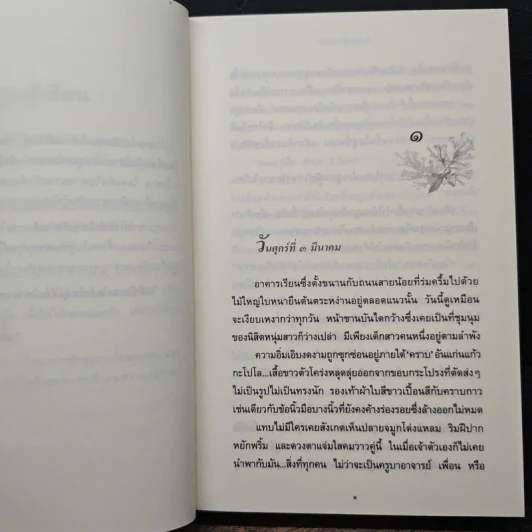 ๑
วันศุกร์ที่ ๓ มีนาคม
อาคารเรียนซึ่งตั้งขนานกับถนนสายน้อยที่ร่มครึ้มไปด้วย
ไม้ใหญ่ใบหนายืนต้นตระหง่านอยู่ตลอดแนวนั้น วันนี้ดูเหมือน
จะเงียบเหงากว่าทุกวัน หน้าชานบันไดกว้างซึ่งเคยเป็นที่ชุมนุม
ของนิสิตหนุ่มสาวก็ว่างเปล่า มีเพียงเด็กสาวคนหนึ่งอยู่ตามลำพัง
ความอิ่มเอิบงดงามถูกซุกซ่อนอยู่ภายใต้ 'คราบ' อันแก่นแก้ว
กะโปโล...เสื้อขาวตัวโคร่งหลุดลุ่ยออกจากขอบกระโปรงที่ตัดส่งๆ
ไม่เป็นรูปไม่เป็นทรงนัก รองเท้าผ้าใบสีขาวเปื้อนสีกับคราบกาว
เช่นเดียวกับข้อนิ้วมือบางนิ้วที่ยังคงค้างร่องรอยซึ่งล้างออกไม่หมด
แทบไม่มีใครเคยสังเกตเห็นปลายจมูกโด่งแหลม ริมฝีปาก
หยักพริ้ม และดวงตาแจ่มใสคมวาวคู่นี้ ในเมื่อเจ้าตัวเองก็ไม่เคย
นำพากับมัน...สิ่งที่ทุกคน ไม่ว่าจะเป็นครูบาอาจารย์ เพื่อน หรือ